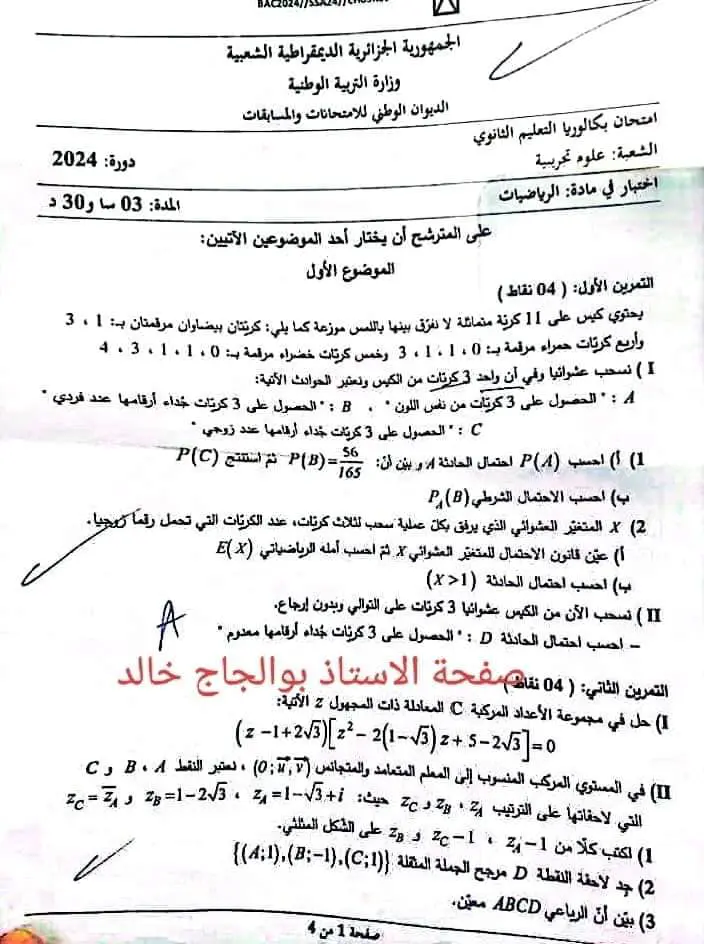 BAC2024//SSA24//
الجمهورية الجزائرية الديمقراطية الشعبية
وزارة التربية الوطنية
الديوان الوطني للامتحانات والمسابقات
امتحان بكالوريا التعليم الثانوي
الشعبة: علوم تجريبية
دورة: 2024
اختبار في مادة: الرياضيات
المدة: 03 سا و30 د
على المترشح أن يختار أحد الموضوعين الآتيين:
الموضوع الأول
التمرين الأول: ( 04 نقاط )
يحتوي كيس على 11 كرية متماثلة لا نفرّق بينها باللمس موزعة كما يلي: كريّتان بيضاوان مرقمتان بـ: 1 ، 3
وأربع كريّات حمراء مرقمة بـ: 0 ، 1 ، 1 ، 3 وخمس كريّات خضراء مرقمة بـ: 0 ، 1 ، 1 ، 3 ، 4
I ) نسحب عشوائيا وفي آن واحد 3 كريّات من الكيس ونعتبر الحوادث الآتية:
A : " الحصول على 3 كريّات من نفس اللون " ، B : " الحصول على 3 كريّات جُداء أرقامها عدد فردي "
C : " الحصول على 3 كريّات جُداء أرقامها عدد زوجي "
1) أ) احسب P(A) احتمال الحادثة A و بيّن أنّ: P(B)=56/165 ثمّ استنتج P(C)
ب) احسب الاحتمال الشرطي P_A(B)
2) X المتغيّر العشوائي الذي يرفق بكلّ عملية سحب لثلاث كريّات، عدد الكريّات التي تحمل رقما زوجيا.
أ) عيّن قانون الاحتمال للمتغيّر العشوائي X ثمّ احسب أمله الرياضياتي E(X)
ب) احسب احتمال الحادثة (X>1)
II ) نسحب الآن من الكيس عشوائيا 3 كريّات على التوالي وبدون إرجاع.
– احسب احتمال الحادثة D : " الحصول على 3 كريّات جُداء أرقامها معدوم "
A
صفحة الاستاذ بوالجاج خالد
التمرين الثاني: ( 04 نقاط )
I) حل في مجموعة الأعداد المركبة ℂ المعادلة ذات المجهول z الآتية:
(z −1+2√3)[z² − 2(1−√3)z + 5−2√3]=0
II) في المستوي المركب المنسوب إلى المعلم المتعامد والمتجانس (O;u⃗,v⃗) ، نعتبر النقط A ، B و C
التي لاحقاتها على الترتيب z_A ، z_B و z_C حيث: z_A=1−√3+i ، z_B=1−2√3 و z_C=z̄_A
1) اكتب كلّا من z_A−1 ، z_C−1 و z_B على الشكل المثلثي.
2) جد لاحقة النقطة D مرجح الجملة المثقلة {(A;1),(B;−1),(C;1)}
3) بيّن أنّ الرباعي ABCD معيّن.
صفحة 1 من 4